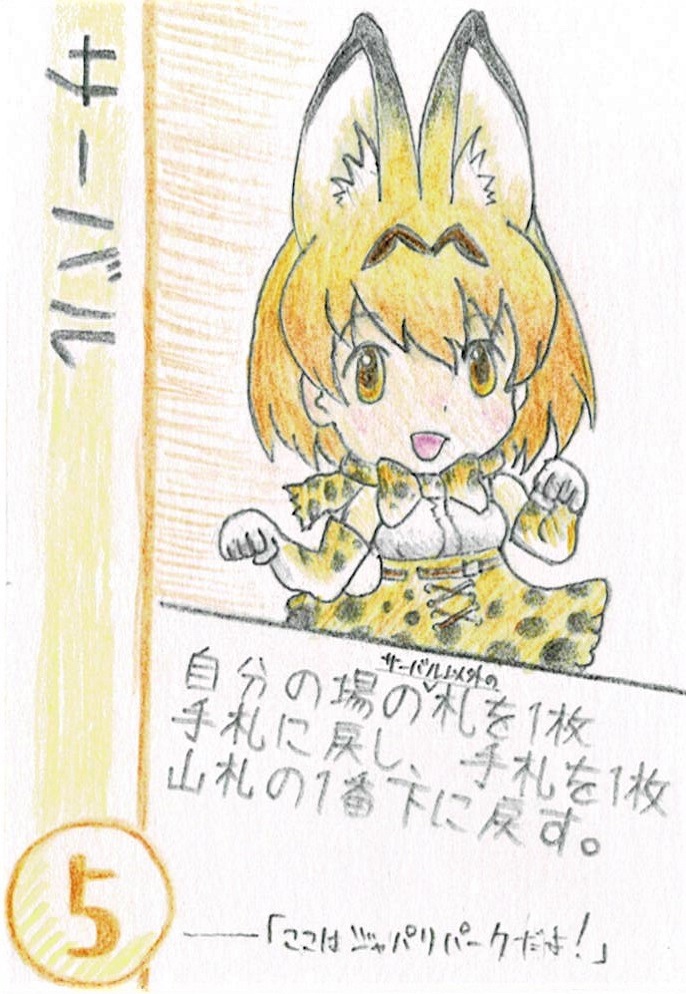 サーバル
自分の場のサーバル以外の札を1枚
手札に戻し、手札を1枚
山札の1番下に戻す。
5
──「ここはジャパリパークだよ!」